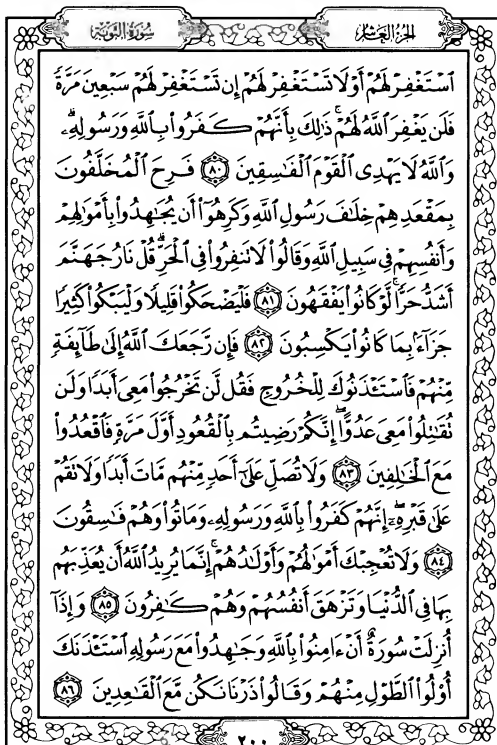 سُورَةُ التَّوْبَةِ
الجُزءُ العَاشِرُ
ٱسۡتَغۡفِرۡ لَهُمۡ أَوۡ لَا تَسۡتَغۡفِرۡ لَهُمۡ إِن تَسۡتَغۡفِرۡ لَهُمۡ سَبۡعِينَ مَرَّةٗ
فَلَن يَغۡفِرَ ٱللَّهُ لَهُمۡۚ ذَٰلِكَ بِأَنَّهُمۡ كَفَرُواْ بِٱللَّهِ وَرَسُولِهِۦۗ
وَٱللَّهُ لَا يَهۡدِي ٱلۡقَوۡمَ ٱلۡفَٰسِقِينَ ٨٠ فَرِحَ ٱلۡمُخَلَّفُونَ
بِمَقۡعَدِهِمۡ خِلَٰفَ رَسُولِ ٱللَّهِ وَكَرِهُوٓاْ أَن يُجَٰهِدُواْ بِأَمۡوَٰلِهِمۡ
وَأَنفُسِهِمۡ فِي سَبِيلِ ٱللَّهِ وَقَالُواْ لَا تَنفِرُواْ فِي ٱلۡحَرِّۗ قُلۡ نَارُ جَهَنَّمَ
أَشَدُّ حَرّٗاۚ لَّوۡ كَانُواْ يَفۡقَهُونَ ٨١ فَلۡيَضۡحَكُواْ قَلِيلٗا وَلۡيَبۡكُواْ كَثِيرٗا
جَزَآءَۢ بِمَا كَانُواْ يَكۡسِبُونَ ٨٢ فَإِن رَّجَعَكَ ٱللَّهُ إِلَىٰ طَآئِفَةٖ
مِّنۡهُمۡ فَٱسۡتَـٔۡذَنُوكَ لِلۡخُرُوجِ فَقُل لَّن تَخۡرُجُواْ مَعِيَ أَبَدٗا وَلَن
تُقَٰتِلُواْ مَعِيَ عَدُوًّاۖ إِنَّكُمۡ رَضِيتُم بِٱلۡقُعُودِ أَوَّلَ مَرَّةٖ فَٱقۡعُدُواْ
مَعَ ٱلۡخَٰلِفِينَ ٨٣ وَلَا تُصَلِّ عَلَىٰٓ أَحَدٖ مِّنۡهُم مَّاتَ أَبَدٗا وَلَا تَقُمۡ
عَلَىٰ قَبۡرِهِۦٓۖ إِنَّهُمۡ كَفَرُواْ بِٱللَّهِ وَرَسُولِهِۦ وَمَاتُواْ وَهُمۡ فَٰسِقُونَ
٨٤ وَلَا تُعۡجِبۡكَ أَمۡوَٰلُهُمۡ وَأَوۡلَٰدُهُمۡۚ إِنَّمَا يُرِيدُ ٱللَّهُ أَن يُعَذِّبَهُم
بِهَا فِي ٱلدُّنۡيَا وَتَزۡهَقَ أَنفُسُهُمۡ وَهُمۡ كَٰفِرُونَ ٨٥ وَإِذَآ
أُنزِلَتۡ سُورَةٌ أَنۡ ءَامِنُواْ بِٱللَّهِ وَجَٰهِدُواْ مَعَ رَسُولِهِ ٱسۡتَـٔۡذَنَكَ
أُوْلُواْ ٱلطَّوۡلِ مِنۡهُمۡ وَقَالُواْ ذَرۡنَا نَكُن مَّعَ ٱلۡقَٰعِدِينَ ٨٦
٢٠٠